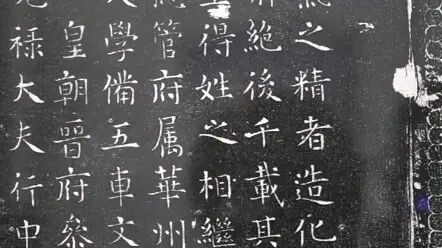 之精者造化
絕後千載其
得姓之相繼
管府属華州
學備五車文
皇朝晉府參
禄大夫行中